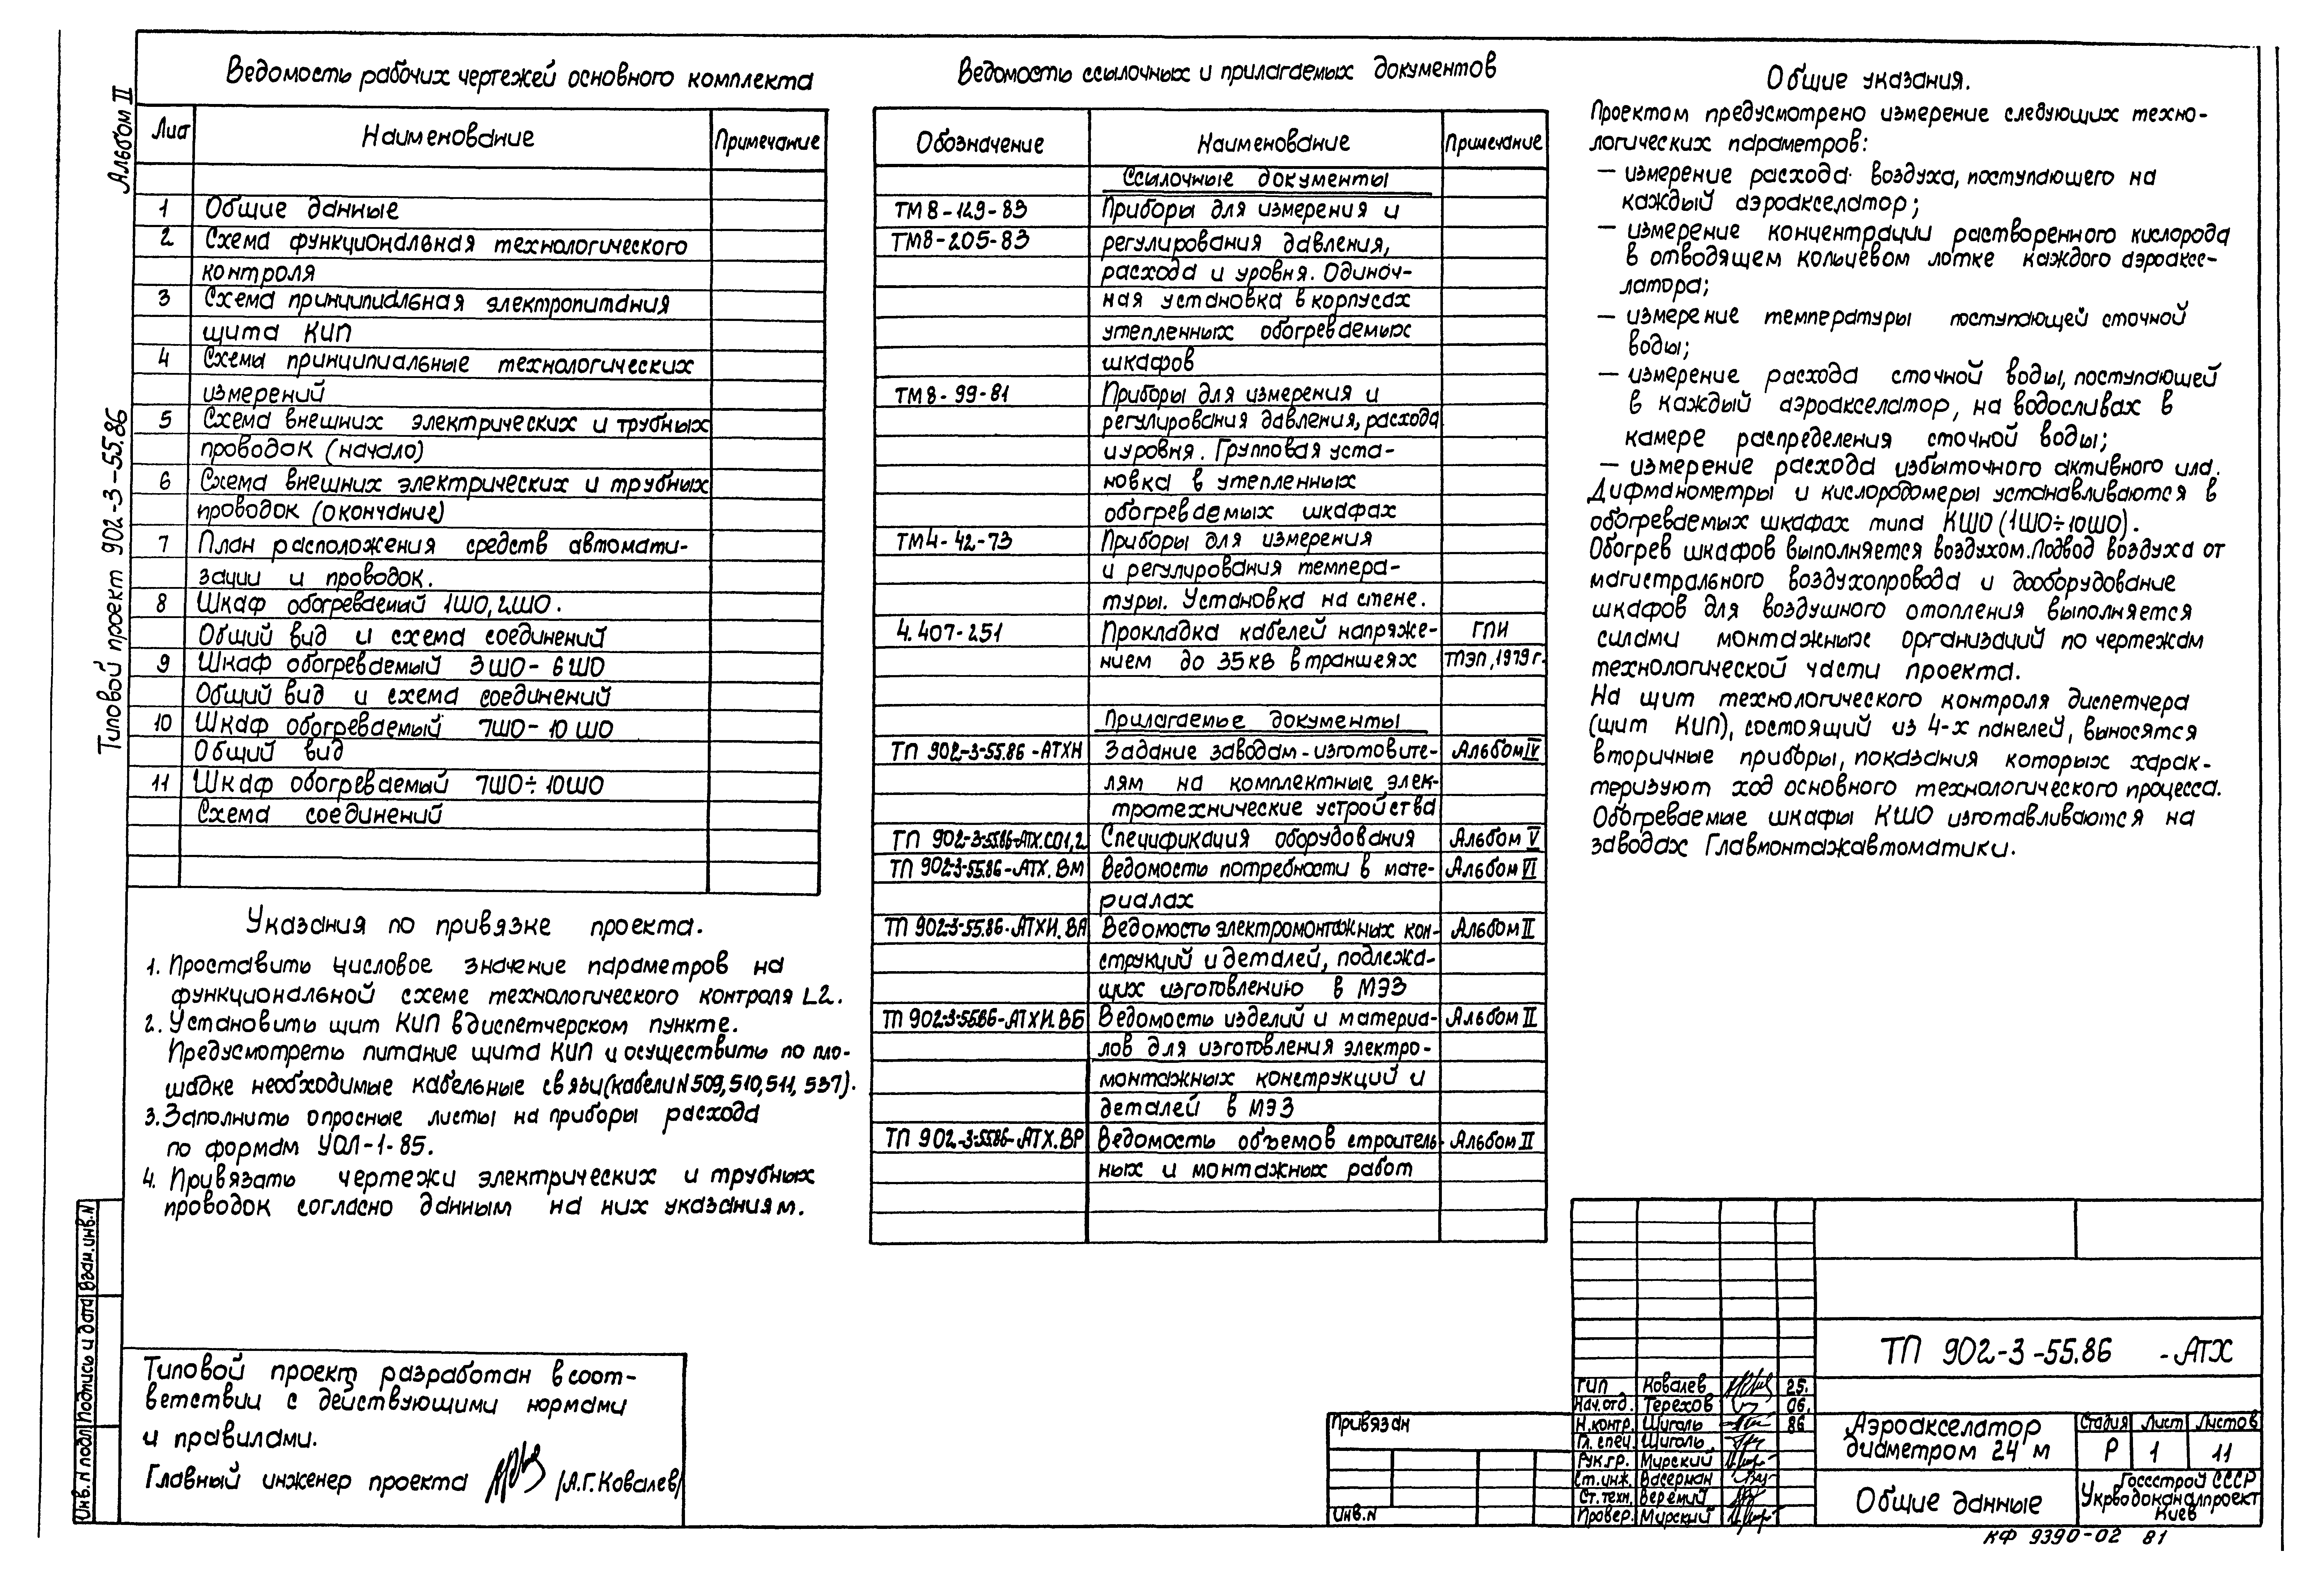 Альбом II
Типовой проект 902-3-55.86
Ведомость рабочих чертежей основного комплекта
Лист Наименование Примечание
1 Общие данные
2 Схема функциональная технологического
контроля
3 Схема принципиальная электропитания
щита КИП
4 Схемы принципиальные технологических
измерений
5 Схема внешних электрических и трубных
проводок (начало)
6 Схема внешних электрических и трубных
проводок (окончание)
7 План расположения средств автомати-
зации и проводок.
8 Шкаф обогреваемый 1ШО, 2ШО.
Общий вид и схема соединений
9 Шкаф обогреваемый 3ШО - 6ШО
Общий вид и схема соединений
10 Шкаф обогреваемый 7ШО - 10ШО
Общий вид
11 Шкаф обогреваемый 7ШО ÷ 10ШО
Схема соединений
Указания по привязке проекта.
1. Проставить числовое значение параметров на
функциональной схеме технологического контроля L2.
2. Установить щит КИП в диспетчерском пункте.
Предусмотреть питание щита КИП и осуществить по пло-
щадке необходимые кабельные связи (кабели N 509, 510, 511, 537).
3. Заполнить опросные листы на приборы расхода
по формам УОЛ-1-85.
4. Привязать чертежи электрических и трубных
проводок согласно данным на них указаниям.
Типовой проект разработан в соот-
ветствии с действующими нормами
и правилами.
Главный инженер проекта /А.Г. Ковалев/
Ведомость ссылочных и прилагаемых документов
Обозначение Наименование Примечание
Ссылочные документы
ТМ8-129-83 Приборы для измерения и
ТМ8-205-83 регулирования давления,
расхода и уровня. Одиноч-
ная установка в корпусах
утепленных обогреваемых
шкафов
ТМ8-99-81 Приборы для измерения и
регулирования давления, расхода
и уровня. Групповая уста-
новка в утепленных
обогреваемых шкафах
ТМ4-42-73 Приборы для измерения
и регулирования темпера-
туры. Установка на стене.
4.407-251 Прокладка кабелей напряже- ГПИ
нием до 35кв в траншеях ТЭП, 1979 г.
Прилагаемые документы
ТП 902-3-55.86-АТХН Задание заводам-изготовите- Альбом IV
лям на комплектные элек-
тротехнические устройства
ТП 902-3-55.86-АТХ.СО1,2 Спецификация оборудования Альбом V
ТП 902-3-55.86-АТХ.ВМ Ведомость потребности в мате- Альбом VI
риалах
ТП 902-3-55.86-АТХИ.ВА Ведомость электромонтажных кон- Альбом II
струкций и деталей, подлежа-
щих изготовлению в МЭЗ
ТП 902-3-55.86-АТХИ.ВБ Ведомость изделий и материа- Альбом II
лов для изготовления электро-
монтажных конструкций и
деталей в МЭЗ
ТП 902-3-55.86-АТХ.ВР Ведомость объемов строитель- Альбом II
ных и монтажных работ
Общие указания.
Проектом предусмотрено измерение следующих техно-
логических параметров:
— измерение расхода воздуха, поступающего на
каждый аэроакселатор;
— измерение концентрации растворенного кислорода
в отводящем кольцевом лотке каждого аэроаксе-
латора;
— измерение температуры поступающей сточной
воды;
— измерение расхода сточной воды, поступающей
в каждый аэроакселатор, на водосливах в
камере распределения сточной воды;
— измерение расхода избыточного активного ила.
Дифманометры и кислородомеры устанавливаются в
обогреваемых шкафах типа КШО (1ШО÷10ШО).
Обогрев шкафов выполняется воздухом. Подвод воздуха от
магистрального воздухопровода и дооборудование
шкафов для воздушного отопления выполняется
силами монтажных организаций по чертежам
технологической части проекта.
На щит технологического контроля диспетчера
(щит КИП), состоящий из 4-х панелей, выносятся
вторичные приборы, показания которых харак-
теризуют ход основного технологического процесса.
Обогреваемые шкафы КШО изготавливаются на
заводах Главмонтажавтоматики.
Взам. инв. N
Подпись и дата
Инв. N подл
Привязан
Инв. N
ГИП Ковалев 25.
Нач. отд. Терехов 06.
Н. контр. Шигаль 86
Гл. спец. Шигаль
Рук. гр. Мирский
Ст. инж. Васерман
Ст. техн. Веремий
Провер. Мирский
ТП 902-3-55.86 -АТХ
Аэроакселатор
диаметром 24 м
Стадия Лист Листов
Р 1 11
Общие данные
Госстрой СССР
Укрводоканалпроект
Киев
КФ 9390-02 81